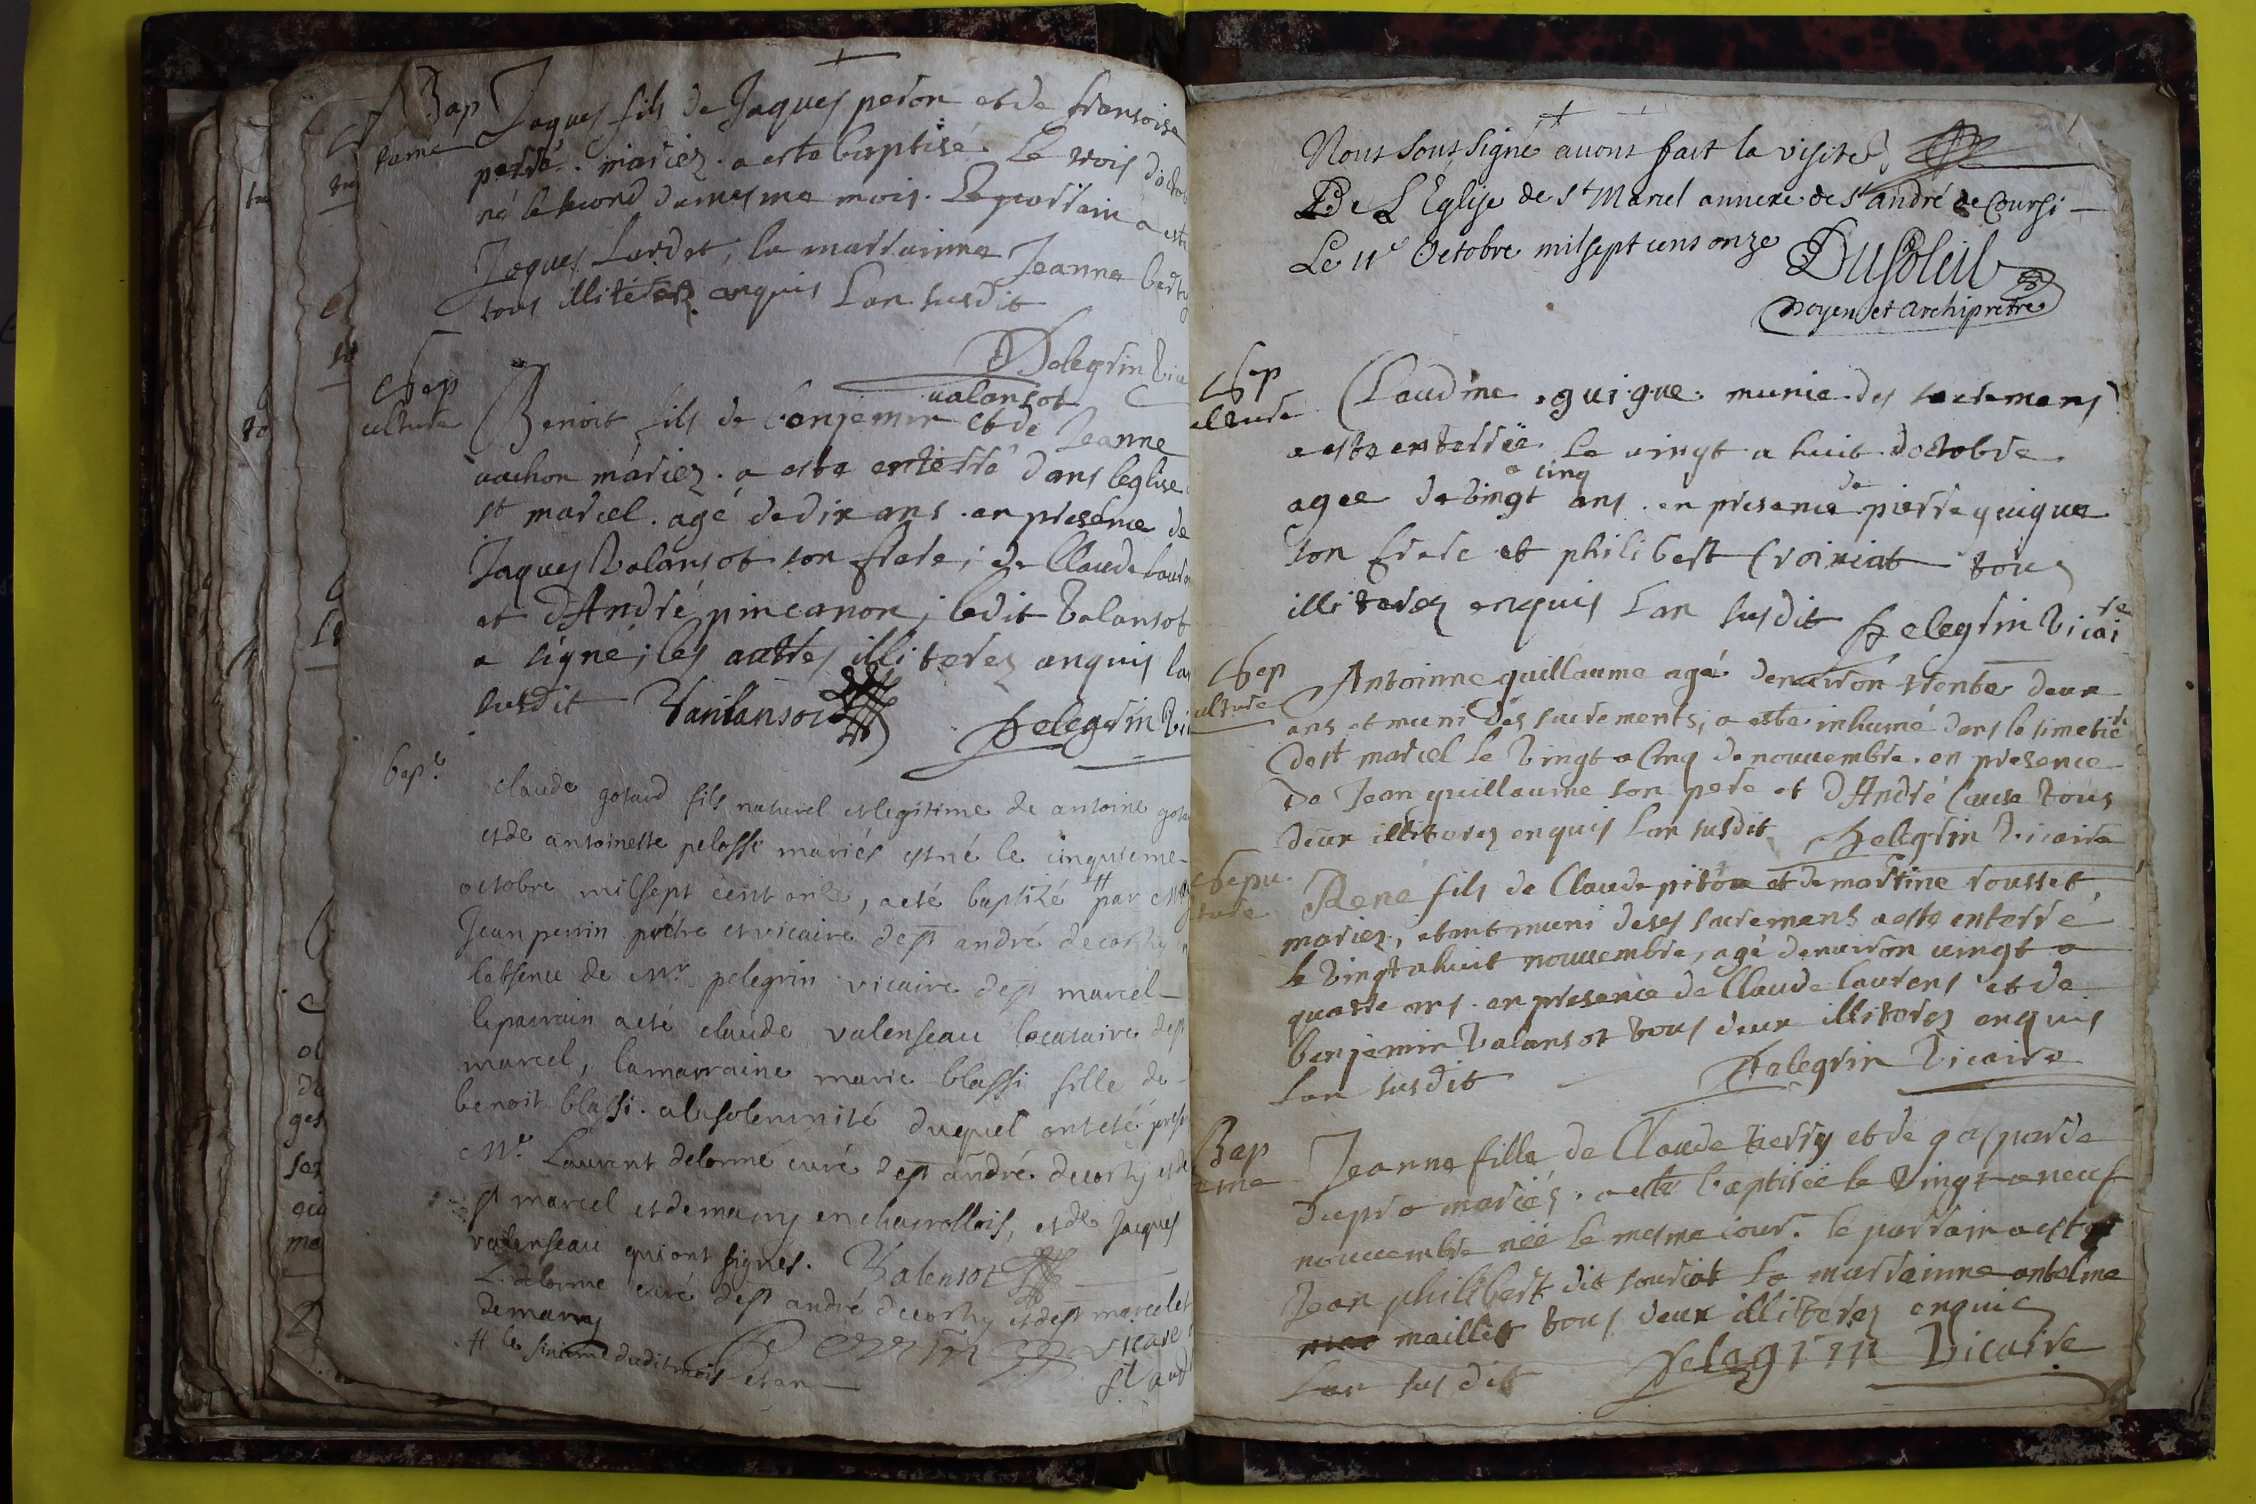 Bap
tame
Jaques fils de Jaques peron et de fransoise
perré. mariez. a este baptisé. Le trois d'octob
né le second du mesme mois. Le parrain a esté
Jaques Lardet, la marrainne Jeanne
tous illiterez enquis Lan susdit
Pelegrin Vic
Sep
ulture
valansot
Benoit fils de benjemin et de Jeanne
vachon mariez. a este enterré dans leglise
st marcel. agé de dix ans. en presence de
Jaques Valansot son frere; de Claude
et d'André pincanon; ledit Valansot
a signé; les autres illiterez enquis lan
susdit Vanlansot
Pelegrin Vic
bap.e
claude gotard fils naturel et legitime de antoine
et de antoinette pelossi mariés est né le cinquieme
octobre milsept cent onze, a eté baptizé # par Mre
Jean perrin prêtre et vicaire de st andré de corsy
labsence de Mr pelegrin vicaire de st marcel
le parrain a eté claude valenseau locataire de st
marcel, la marraine marie blassi fille de
benoit blassi. a la solemnité duquel ont eté
Mre Laurent delorme curé de st andré de corsy et de
st marcel et de marny en charrollois, et de Jacques
valenseau qui ont signes. Valensot
L. delorme curé de st andré de corsy et de st marcel et
de marny
Perrin vicare
st and
# le sixieme dudit mois et an
Nous sous signé avons fait la visite
De L'Eglise de St Marcel annexe de St andré de Coursi
Le 11e Octobre mil sept cens onze Dusoleil
Doyen et Archiprêtre
Sep
ulture
Claudine guigue. munie des sacremens
a este enterrée. Le vingt a huit d'octobre.
agee de vingt a cinq ans. en presence de pierre guigue
son frere et philibert Croiziat tous
illiterez enquis Lan susdit Pelegrin Vicaire
Sep
ulture
Antoinne guillaume agé d'environ trente deux
ans et muni des sacrements; a este inhumé dans le simetiere
de st marcel le vingt a cinq de nouvembre. en presence
De Jean guillaume son pere et d'André tous
deux illiterez enquis lan susdit Pelegrin Vicaire
Sepu
ture
René fils de Claude piton et de martine rousset,
mariez, etant muni de ses sacremens a este enterré
le vingt a huit nouvembre, agé d'environ vingt a
quatre ans. en presence de Claude laurens et de
benjemin Valansot tous deux illiterez enquis
Lan susdit Pelegrin Vicaire
Bap
teme
Jeanne fille de Claude et de gasparde
dupra mariés. a este baptisée le vingt a neuf
nouvembre née le mesme iour. le parrain a esté
Jean philibert dit souriat la marrainne antelme
maillet tous deux illiterez enquis
Lan susdit Pelagrin Vicaire